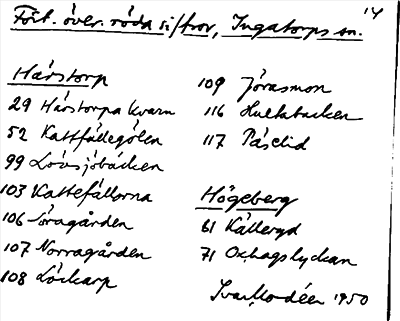 Fört. över. röda siffror, Ingatorps sn. 14
Hårstorp
29 Hårstorpa kvarn
52 Kattfällegölen
99 Lövsjöbäcken
103 Kattefällorna
106 Söragården
107 Norragården
108 Löckarp
109 Jörasmon
116 Hultabacken
117 Påfslid
Högeberg
61 Källeryd
71 Oxhagslyckan
Ivar Modéer 1950